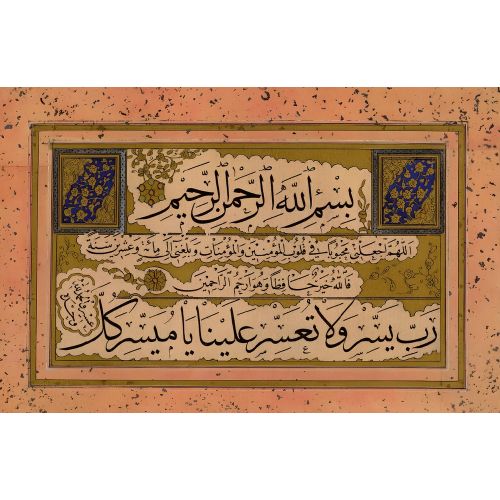 بسم الله الرحمن الرحيم
اللهم اجعلني محبوبا في قلوب المؤمنين والمؤمنات وبلغني الى مائة وعشرين سنة
فالله خير حافظا وهو ارحم الراحمين
رب يسر ولا تعسر علينا يا ميسر كل